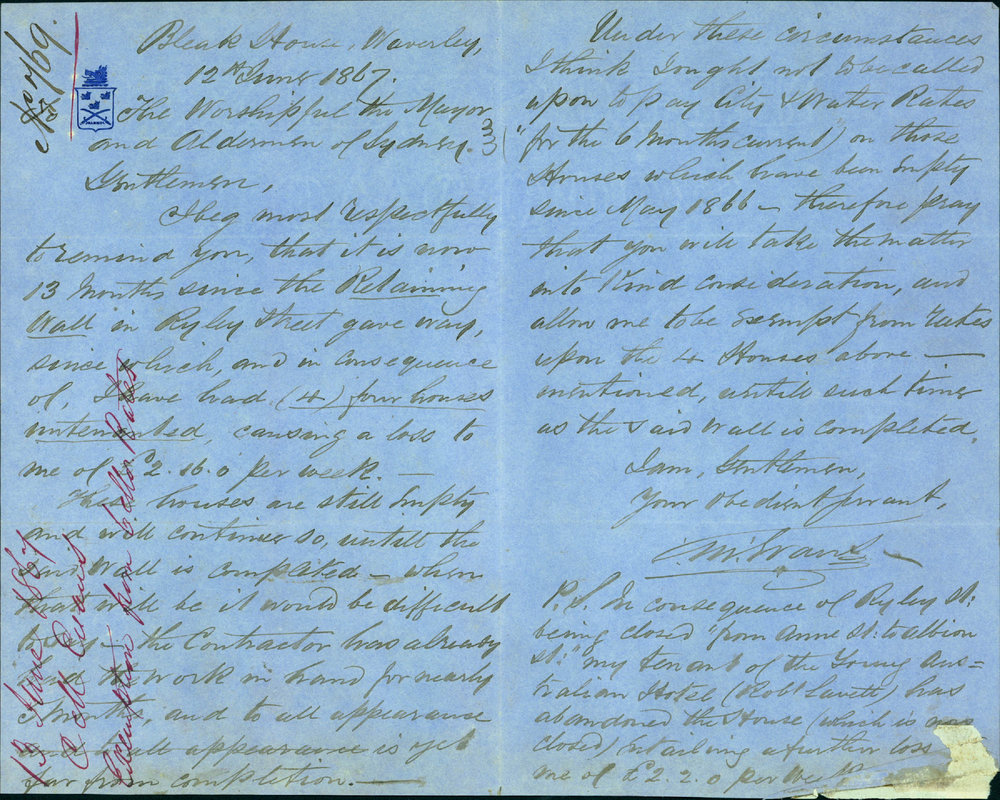 Bleak House, Waverley,
12th June 1867.
The Worshipful the Mayor
and Aldermen of Sydney.
Gentlemen,
I beg most respectfully
to remind you, that it is now
13 Months since the Retaining
Wall in Ryley Street gave way,
since which, and in consequence
of, I have had (4) four houses
untenanted, causing a loss to
me of £2.16.0 per week. —
These houses are still Empty
and will continue so, untill the
said Wall is completed — when
that will be it would be difficult
to say — the Contractor has already
had the work in hand for nearly
Months, and to all appearance
and to all appearance is yet
far from completion. —
Under these circumstances
I think I ought not to be called
upon to pay City & Water Rates
"for the 6 Months current) on those
Houses which have been Empty
since May 1866 — therefore pray
that you will take the matter
into Kind consideration, and
allow me to be Exempt from Rates
upon the 4 Houses above —
mentioned, untill such time
as the said Wall is completed.
I am, Gentlemen,
Your Obedient servant,
Evans
P.S. In consequence of Ryley St:
being closed "from Anne St: to Albion
St:" my tenant of the Young Aus=
tralian Hotel (Robt Lavett) has
abandoned the House (which is now
closed) Entailing a further loss
me of £2.2.0 per Week
13 June 1867
Evans
Exemption from Rates